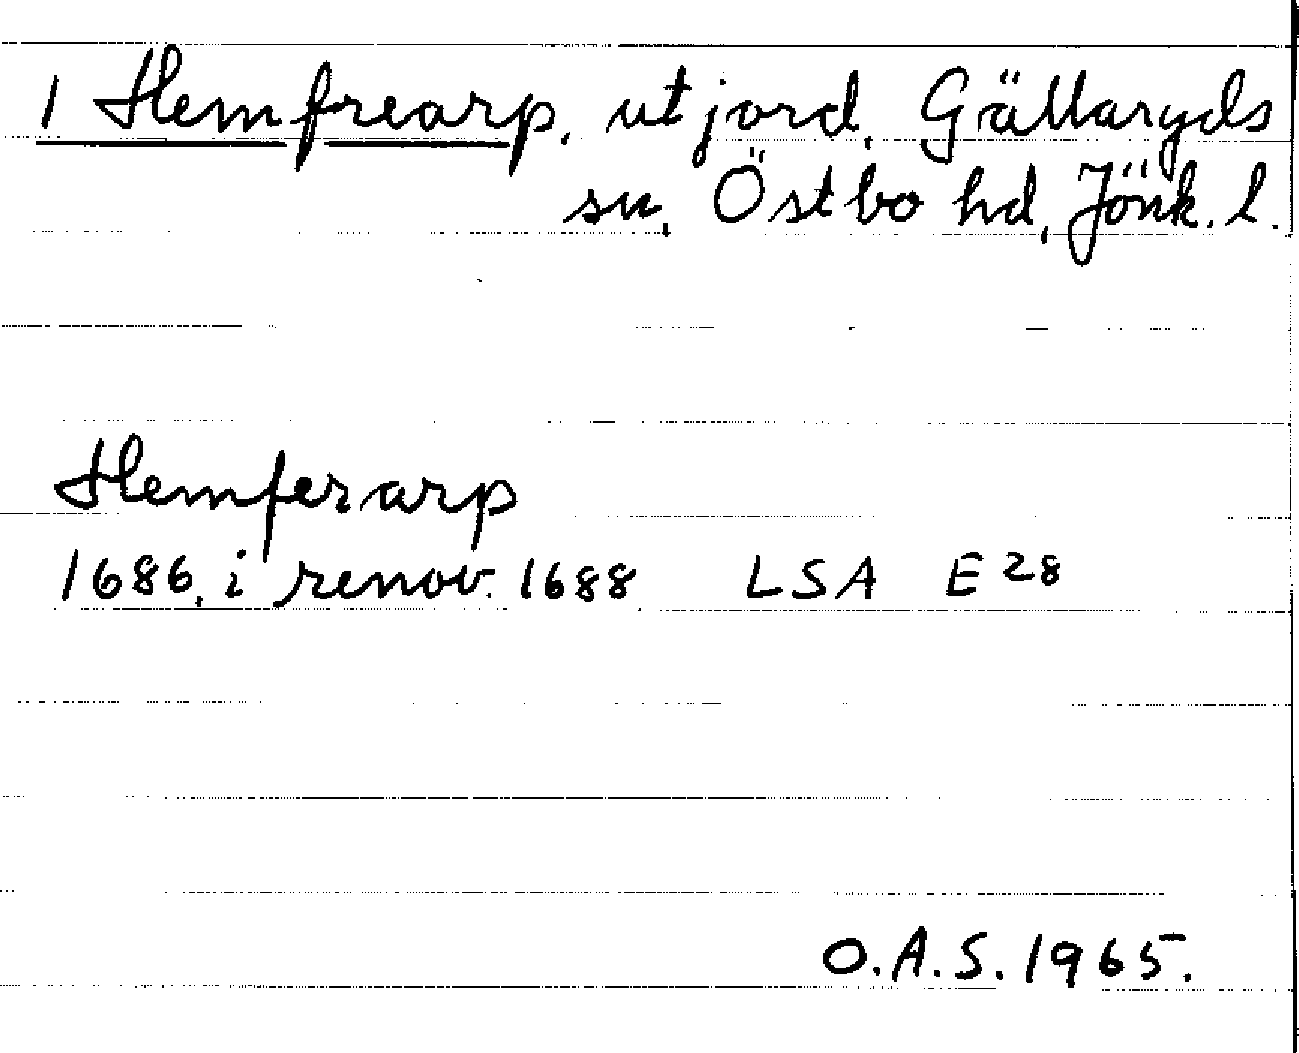 1 Hemfrearp, utjord, Gällaryds
sn, Östbo hd, Jönk. l.
Hemferarp
1686, i renov. 1688 LSA E28
O.A.S. 1965.